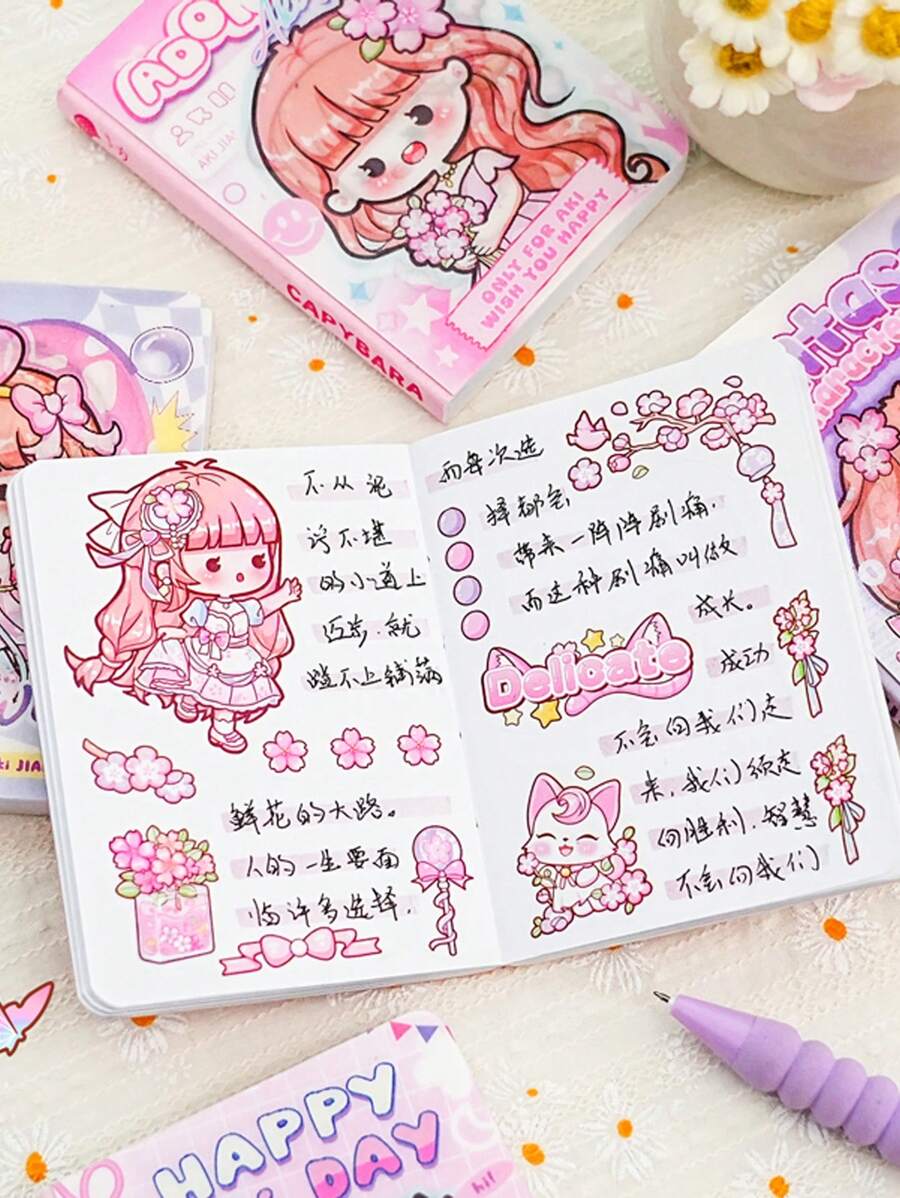 ADO
AKI JIA
ONLY FOR AKI
WISH YOU HAPPY
CAPYBARA
不从泥
泞不堪
的小道上
迈步.就
踏不上铺满
鲜花的大路。
人的一生要面
临许多选择.
而每次选
择都会
带来一阵阵刷痛.
而这种刷痛叫做
成长。
Delicate
成功
不会向我们走
来,我们须走
向胜利.智慧
不会向我们
ki JIA
HAPPY
DAY
hi!